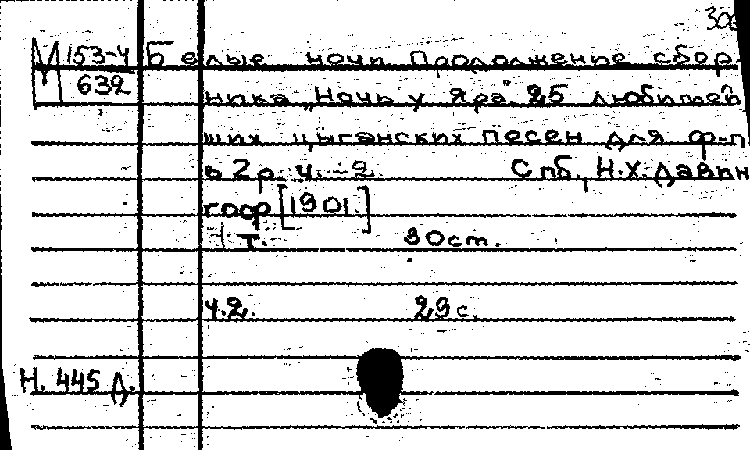 300
М 153-4 Белые ночи Продолжение сбор-
632
ника „Ночь у Яра" 25 любитель
ских цыганских песен для ф-п
в 2 р. ч. -2 Спб., Н.Х. Давин
гоф [1901.]
т. 30 ст.
ч.2. 29 с.
Н. 445 д.